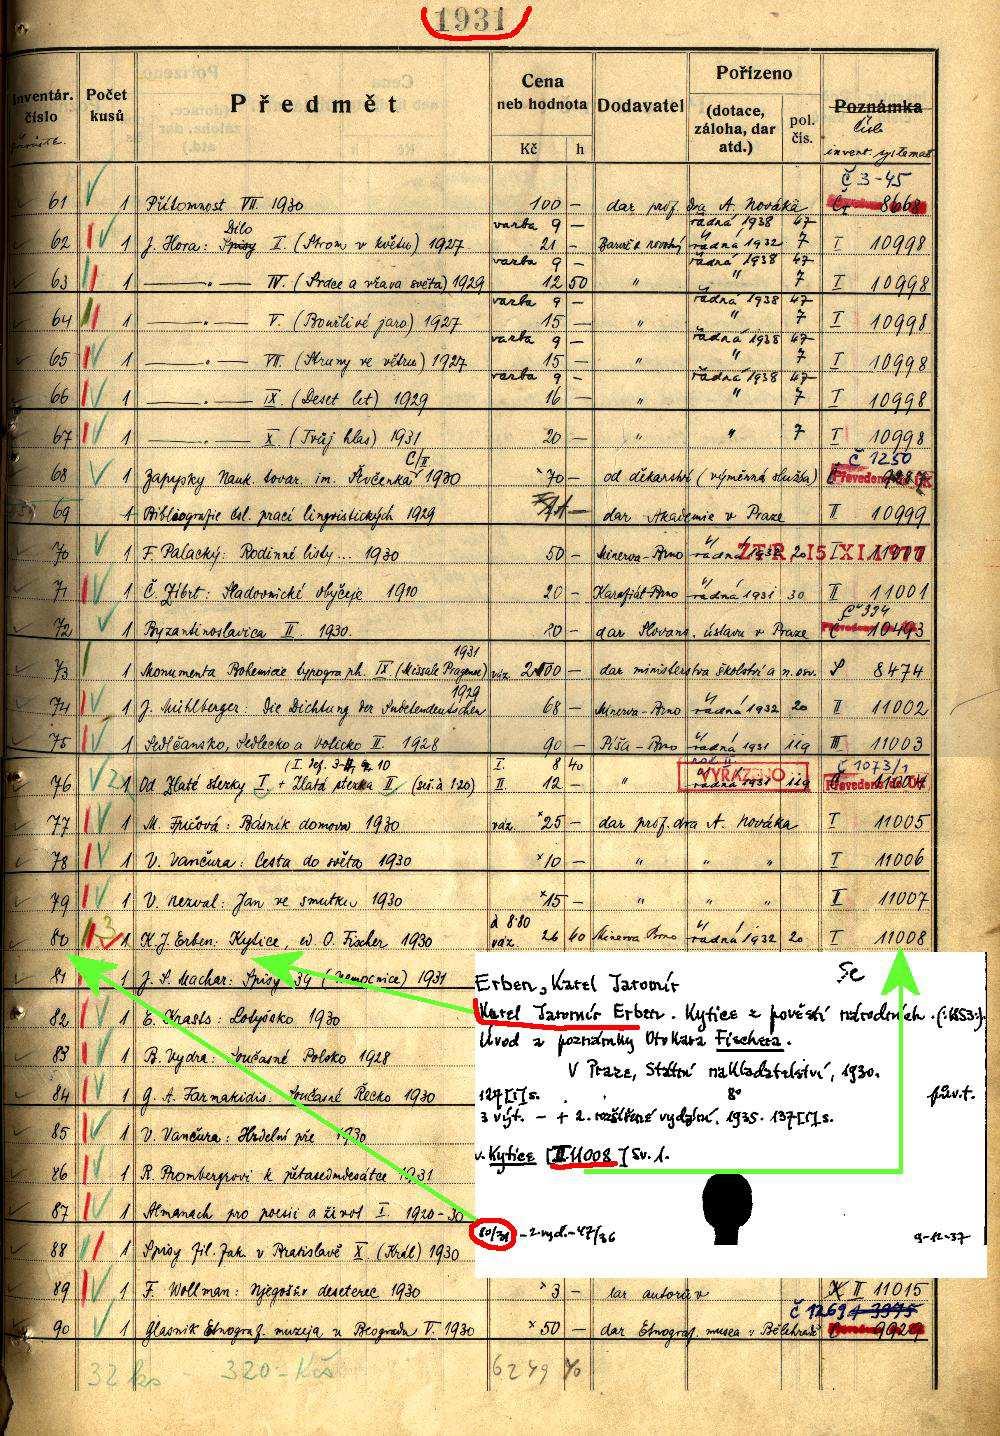 1931
Inventár. číslo
Počet kusů
Předmět
Cena neb hodnota
Kč h
Dodavatel
Pořízeno
(dotace, záloha, dar atd.)
pol. čís.
Poznámka
číslo
invent. systemat.
Č 3-45
61 1 Přítomnost VII 1930 100 — dar prof. Dra A. Nováka 8668
Dílo vazba 9 — řádná 1938 47
62 1 J. Hora: Spisy I. (Strom v květu) 1927 21 — řádná 1932 7 I 10998
vazba 9 — řádná 1938 47
63 1 —"— IV. (Srdce a vřava světa) 1929 12 50 " " 7 I 10998
vazba 9 — řádná 1938 47
64 1 —"— V. (Bouřlivé jaro) 1927 15 — " " 7 I 10998
vazba 9 — řádná 1938 47
65 1 —"— VII. (Struny ve větru) 1927 15 — " " 7 I 10998
vazba 9 — řádná 1938 47
66 1 —"— IX. (Deset let) 1929 16 — " " 7 I 10998
67 1 —"— X (Tvůj hlas) 1931 20 — " " 7 I 10998
C/II Č 1250
68 1 Zapysky Nauk. tovar. im. Ševčenka 1930 70 — od děkanství (výměnná služba)
69 1 Bibliografie čsl. prací lingvistických 1929 — dar Akademie v Praze II 10999
70 1 F. Palacký: Rodinné listy... 1930 50 — Minerva-Brno řádná 1932 20 I 11000
ZTR. 15 XI. 1977
71 1 Č. Zíbrt: Sladovnické obyčeje 1910 20 — Karafiát-Brno řádná 1931 30 II 11001
72 1 Byzantinoslavica II. 1930. 20 — dar Slovans. ústavu v Praze Č 10493
1931
73 1 Monumenta Bohemiae typograph. IX (Missale Pragense) váz. 2100 — dar ministerstva školství a n. osv. S 8474
1929
74 1 J. Mühlberger: Die Dichtung der Sudetendeutschen 68 — Minerva-Brno řádná 1932 20 II 11002
75 1 Sedlčansko, Sedlecko a Voticko II. 1928 90 — Píša-Brno řádná 1931 119 III 11003
I. 8 40 Č 1073/1
76 1 Od Zlaté stezky I. + Zlatá stezka II (seš. à 1·20) II 12 — " řádná 1931 119 11004
VYŘAZENO
77 1 M. Fričová: Básník domova 1930 váz. 25 — dar prof. dra A. Nováka I 11005
78 1 V. Vančura: Cesta do světa 1930 10 — " " " I 11006
79 1 V. Nezval: Jan ve smutku 1930 15 — " " " I 11007
à 8·80
80 1 K. J. Erben: Kytice, ed. O. Fischer 1930 váz. 26 40 Minerva Brno řádná 1932 20 I 11008
81 1 J. S. Machar: Spisy 39 (Nemocnice) 1931
82 1 E. Krasts: Lotyšsko 1930
83 1 B. Vydra: Současné Polsko 1928
84 1 G. A. Farmakidis: Současné Řecko 1930
85 1 V. Vančura: Hrdelní pře 1930
86 1 R. Brombergrovi k pětasedmdesátce 1931
87 1 Almanach pro poesii a život I. 1920-30
88 1 Spisy fil. fak. v Bratislavě X. (Král) 1930
Erben, Karel Jaromír
Karel Jaromír Erben. Kytice z pověstí národních. (:1853:).
Úvod a poznámky Otokara Fischera.
V Praze, Státní nakladatelství, 1930.
127 [I] s. 8° pův. t.
3 výt. — + 2. rozšířené vydání, 1935. 137 [I] s.
v. Kytice [II. 11008] Sv. 1.
80/31 – 2. vyd. – 47/36 9-12-37
89 1 F. Wollman: Njegošův deseterec 1930 3 — dar autorův II 11015
Č 12694
90 1 Glasnik Etnograf. muzeja u Beogradu V. 1930 50 — dar Etnograf. musea v Bělehradě
32 ks 320 – Kčs 6249 70